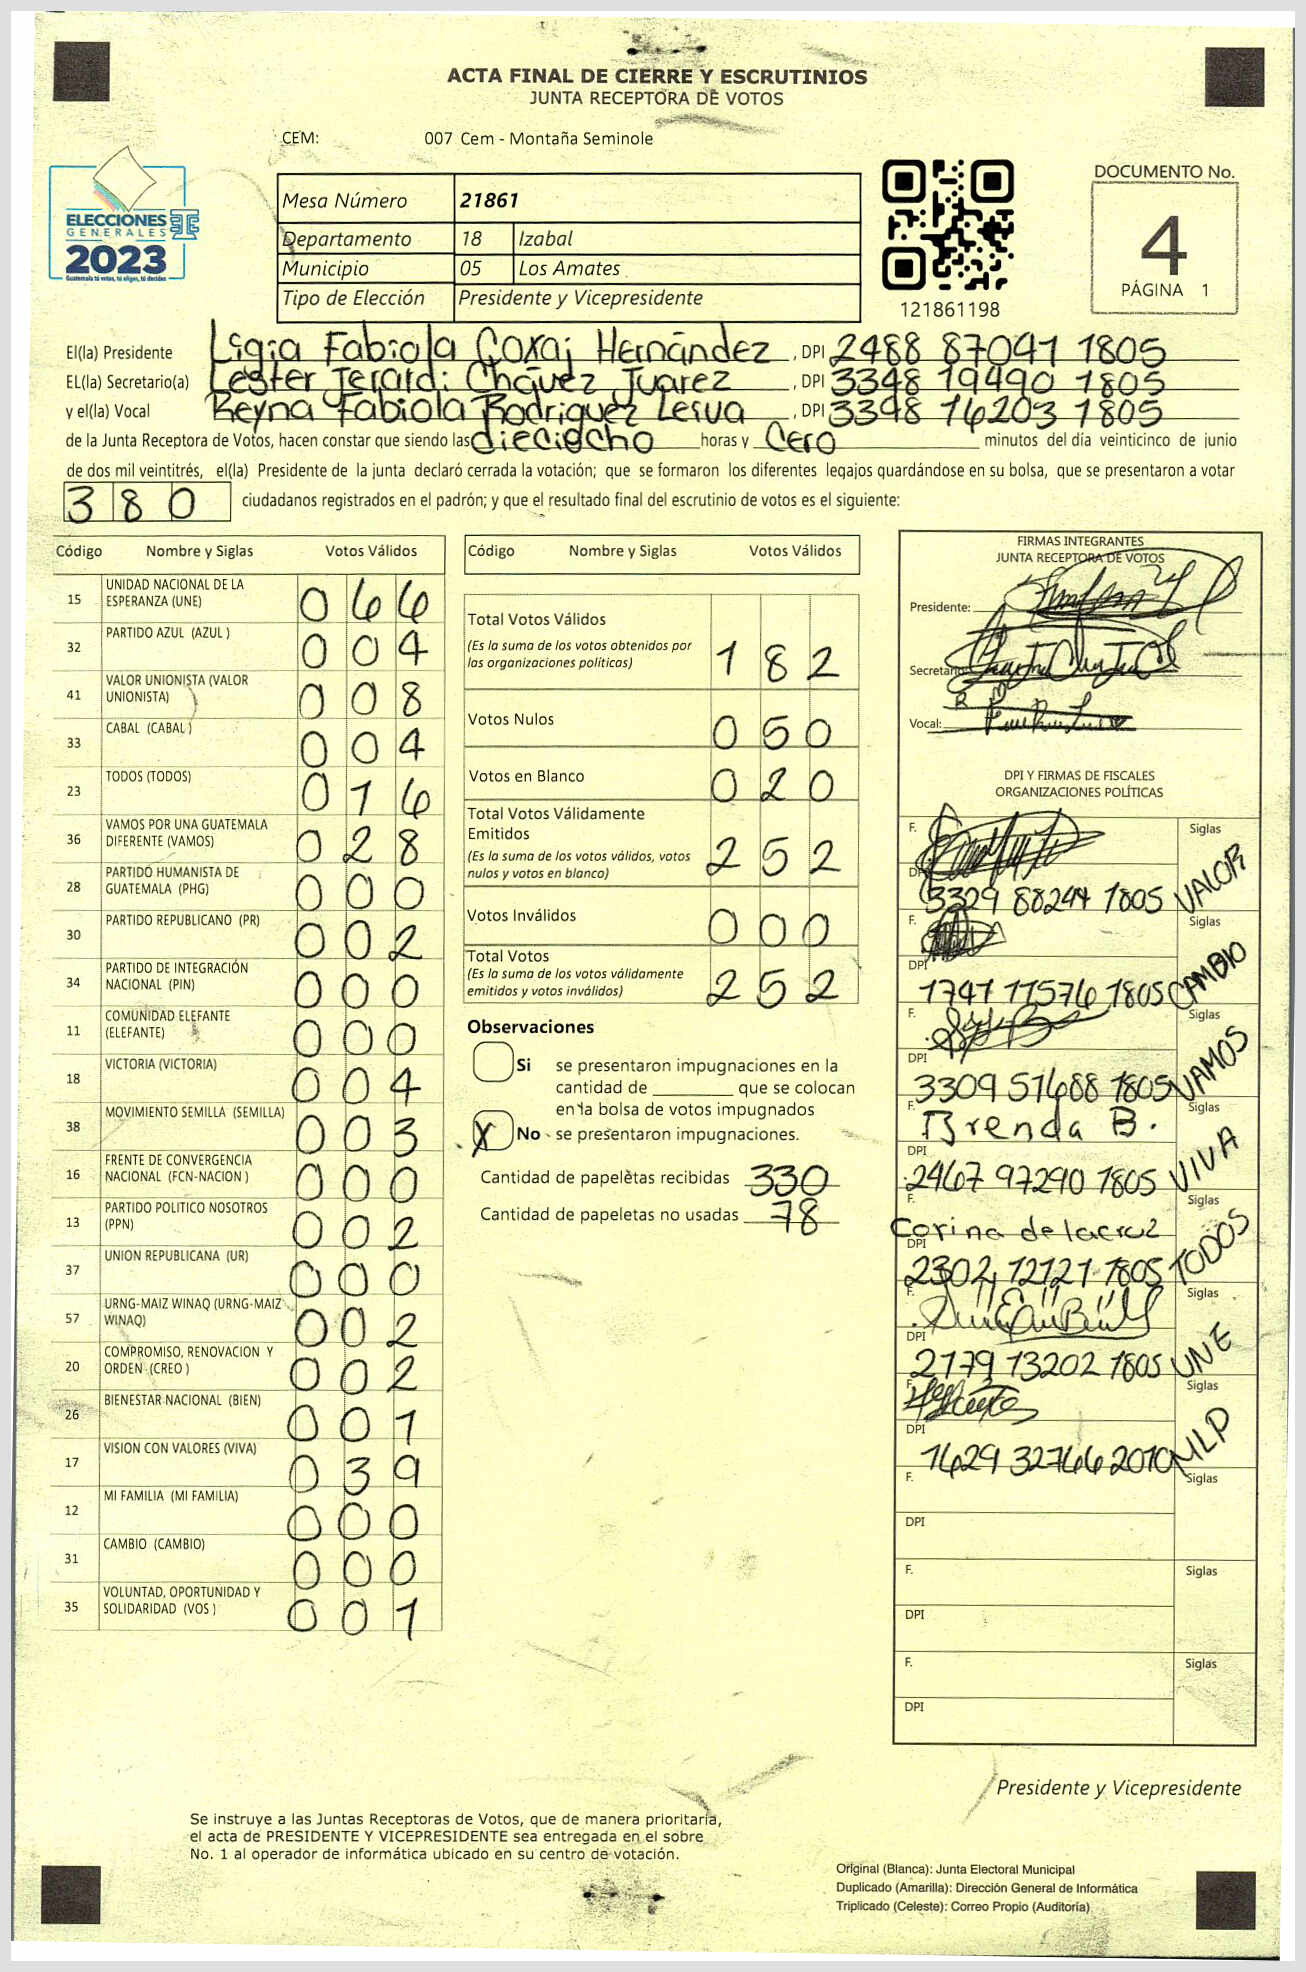 ACTA FINAL DE CIERRE Y ESCRUTINIOS
JUNTA RECEPTORA DE VOTOS
CEM: 007 Cem - Montaña Seminole
ELECCIONES
GENERALES
2023
Guatemala tú votas, tú eliges, tú decides
Mesa Número 21861
Departamento 18 Izabal
Municipio 05 Los Amates
Tipo de Elección Presidente y Vicepresidente
121861198
DOCUMENTO No.
4
PÁGINA 1
El(la) Presidente Ligia Fabiola Coxaj Hernández, DPI 2488 87041 1805
EL(la) Secretario(a) Lester Jerardi Chávez Juarez, DPI 3348 19490 1805
y el(la) Vocal Reyna Fabiola Rodriguez Leiva, DPI 3348 76203 1805
de la Junta Receptora de Votos, hacen constar que siendo las dieciocho horas y Cero minutos del día veinticinco de junio
de dos mil veintitrés, el(la) Presidente de la junta declaró cerrada la votación; que se formaron los diferentes legajos quardándose en su bolsa, que se presentaron a votar
380 ciudadanos registrados en el padrón; y que el resultado final del escrutinio de votos es el siguiente:
Código Nombre y Siglas Votos Válidos
15 UNIDAD NACIONAL DE LA ESPERANZA (UNE) 066
32 PARTIDO AZUL (AZUL ) 004
41 VALOR UNIONISTA (VALOR UNIONISTA) 008
33 CABAL (CABAL ) 004
23 TODOS (TODOS) 016
36 VAMOS POR UNA GUATEMALA DIFERENTE (VAMOS) 028
28 PARTIDO HUMANISTA DE GUATEMALA (PHG) 000
30 PARTIDO REPUBLICANO (PR) 002
34 PARTIDO DE INTEGRACIÓN NACIONAL (PIN) 000
11 COMUNIDAD ELEFANTE (ELEFANTE) 000
18 VICTORIA (VICTORIA) 004
38 MOVIMIENTO SEMILLA (SEMILLA) 003
16 FRENTE DE CONVERGENCIA NACIONAL (FCN-NACION ) 000
13 PARTIDO POLITICO NOSOTROS (PPN) 002
37 UNION REPUBLICANA (UR) 000
57 URNG-MAIZ WINAQ (URNG-MAIZ WINAQ) 002
20 COMPROMISO, RENOVACION Y ORDEN (CREO ) 002
26 BIENESTAR NACIONAL (BIEN) 001
17 VISION CON VALORES (VIVA) 039
12 MI FAMILIA (MI FAMILIA) 000
31 CAMBIO (CAMBIO) 000
35 VOLUNTAD, OPORTUNIDAD Y SOLIDARIDAD (VOS ) 001
Código Nombre y Siglas Votos Válidos
Total Votos Válidos
(Es la suma de los votos obtenidos por
las organizaciones políticas) 182
Votos Nulos 050
Votos en Blanco 020
Total Votos Válidamente
Emitidos
(Es la suma de los votos válidos, votos
nulos y votos en blanco) 252
Votos Inválidos 000
Total Votos
(Es la suma de los votos válidamente
emitidos y votos inválidos) 252
Observaciones
Si se presentaron impugnaciones en la
cantidad de ________ que se colocan
en la bolsa de votos impugnados
X No se presentaron impugnaciones.
Cantidad de papeletas recibidas 330
Cantidad de papeletas no usadas 78
FIRMAS INTEGRANTES
JUNTA RECEPTORA DE VOTOS
Presidente:
Secretario:
Vocal:
DPI Y FIRMAS DE FISCALES
ORGANIZACIONES POLÍTICAS
F. Siglas
DPI 3329 88244 1805 VALOR
F. Siglas
DPI 1741 11576 1805 CAMBIO
F. Siglas
DPI 3309 51688 1805 VAMOS
F. Brenda B. Siglas
DPI 2467 97290 1805 VIVA
F. Corina delacruz Siglas
DPI 2302 12121 1805 TODOS
F. Siglas
DPI 2179 13202 1805 UNE
F. Siglas
DPI 1629 32766 2010 MLP
F. Siglas
DPI
F. Siglas
DPI
F. Siglas
DPI
Presidente y Vicepresidente
Se instruye a las Juntas Receptoras de Votos, que de manera prioritaria,
el acta de PRESIDENTE Y VICEPRESIDENTE sea entregada en el sobre
No. 1 al operador de informática ubicado en su centro de votación.
Original (Blanca): Junta Electoral Municipal
Duplicado (Amarilla): Dirección General de Informática
Triplicado (Celeste): Correo Propio (Auditoría)